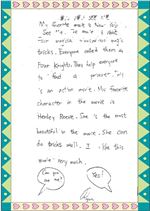 My favorite movie is Now You
See Me. The movie is about
four
tricks. Everyone called them a
Four Knights. They help everyone
to find a
is an action movie. My favorite
character in the movie is
Henley Reeve. She is the most
beautiful in the movie. She can
do tricks well. I like this
movie very much.
Can you
see me?
Yes!